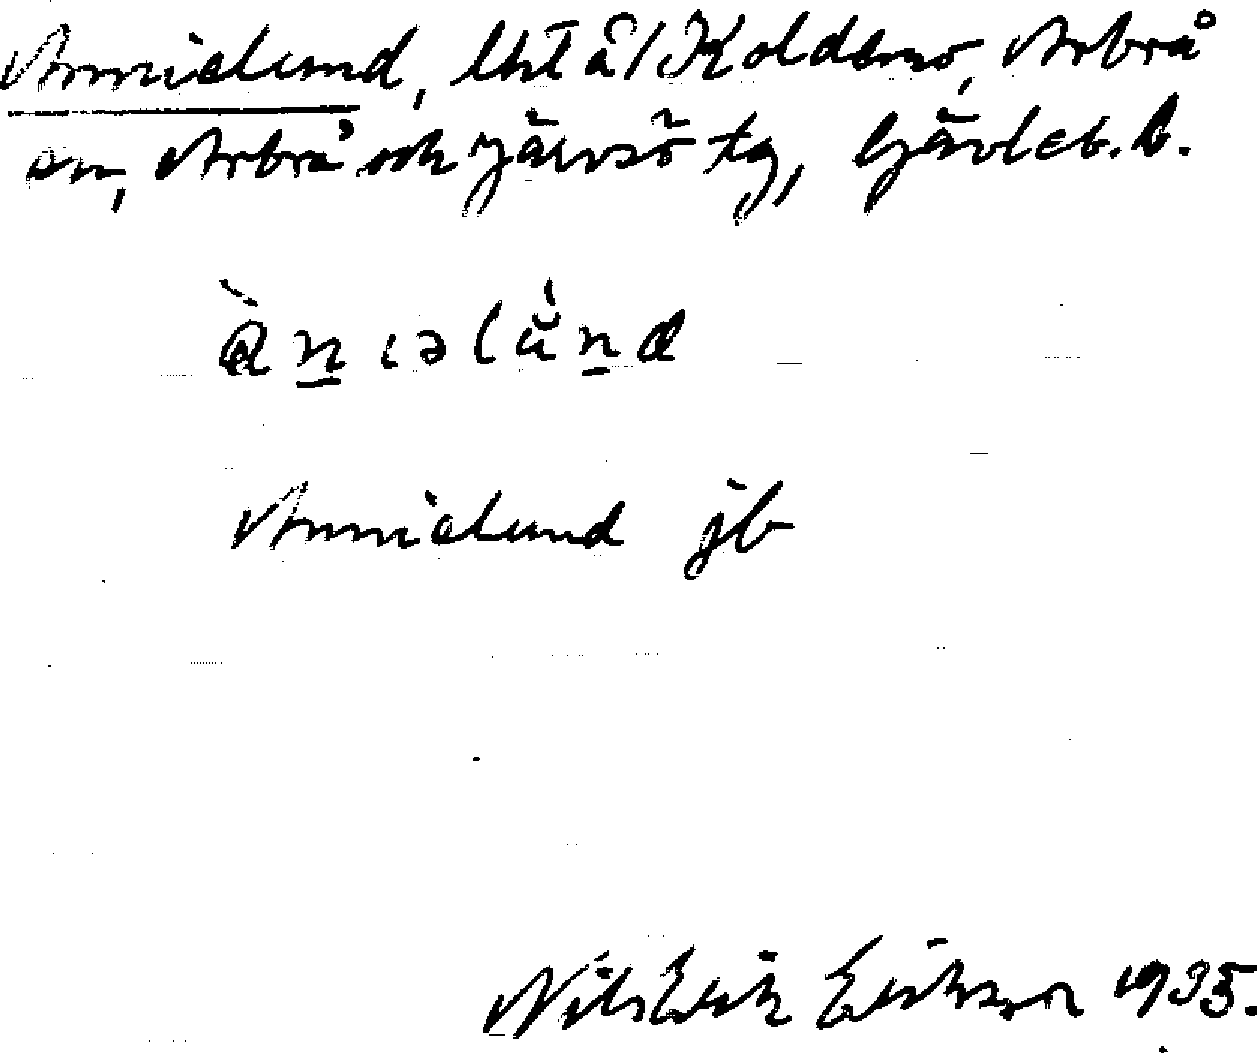 Annielund, lht å/Koldemo, Arbrå
sn, Arbrå och Järvsö tg, Gävleb. l.
ànıəlùnd
Annielund jb
Nils Erik Eriksson 1935.